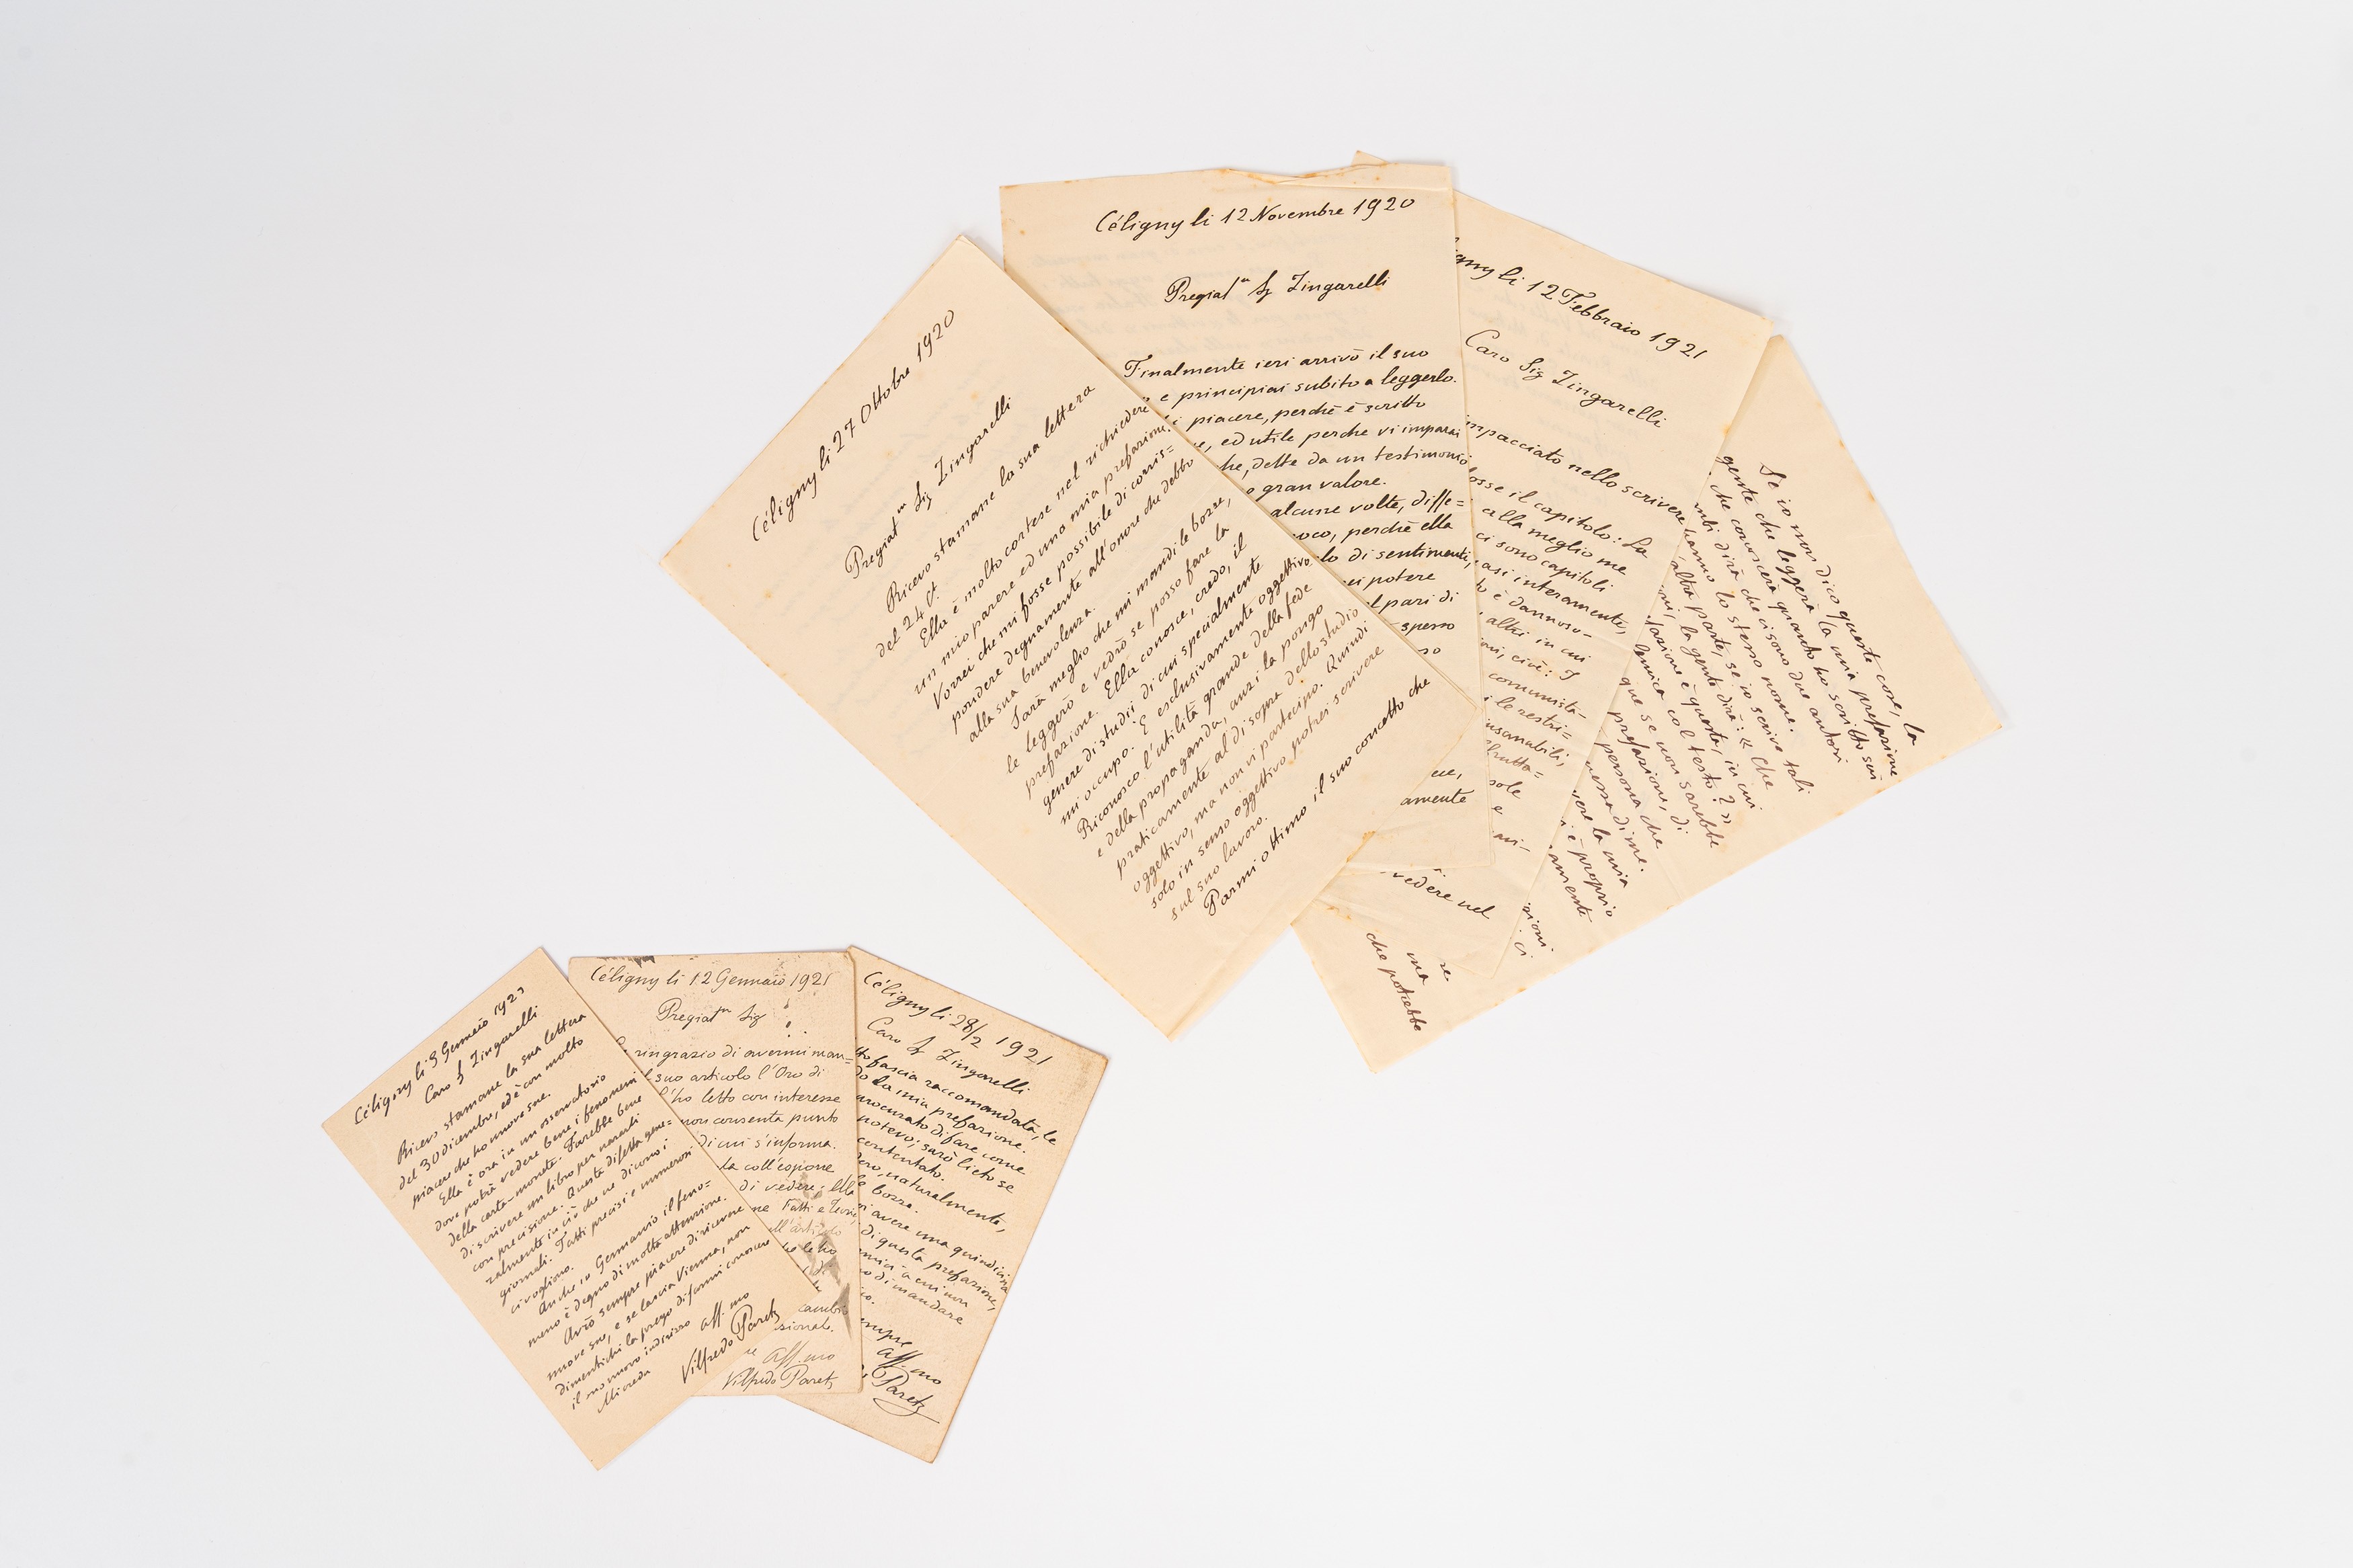 Céligny li 27 Ottobre 1920
Pregiat.mo Sig Zingarelli
Ricevo stamane la sua lettera
del 24 ct.
Ella è molto cortese nel richiedere
un mio parere ed una mia prefazione.
Vorrei che mi fosse possibile di corris=
pondere degnamente all'onore che debbo
alla sua benevolenza.
Sarà meglio che mi mandi le bozze,
le leggerò e vedrò se posso fare la
prefazione. Ella conosce, credo, il
genere di studii di cui specialmente
mi occupo. È esclusivamente oggettivo
Riconosco l'utilità grande della fede
e della propaganda, anzi la pongo
praticamente al disopra dello studio
oggettivo, ma non vi partecipo. Quindi
solo in senso oggettivo potrei scrivere
sul suo lavoro.
Parmi ottimo il suo concetto che
Céligny li 12 Novembre 1920
Pregiat.mo Sg Zingarelli
Finalmente ieri arrivò il suo
e principiai subito a leggerlo.
piacere, perchè è scritto
ed utile perche vi imparai
che, dette da un testimonio
gran valore.
alcune volte, diffe=
poco, perchè ella
lo di sentimenti,
potere
pari di
spesso
amente
gny li 12 Febbraio 1921
Caro Sig Zingarelli
impacciato nello scrivere
fosse il capitolo: La
alla meglio me
ci sono capitoli
asi interamente,
è dannoso-
altri in cui
comunista-
le restri=
insanabili,
frutta=
sole
e
vedere nel
Se io non dico queste cose, la
gente che leggerà la mia prefazione
che conoscerà quanto ho scritto sui
mbi dirà che ci sono due autori
hanno lo stesso nome.
altra parte, se io scrivo tali
la gente dirà: « che
fazione è questa, in cui
lemica col testo? »
que se non sarebbe
prefazioni, di
persona che
nessa di me.
vere la mia
è proprio
amente
ma
che potrebbe
Céligny li 9 Gennaio 1923
Caro S Zingarelli
Ricevo stamane la sua lettera
del 30 dicembre, ed è con molto
piacere che ho nuove sue.
Ella è ora in un osservatorio
dove potrà vedere bene i fenomeni
della carta-moneta. Farebbe bene
di scrivere un libro per narrarli
con precisione. Questa difetta gene=
ralmente in ciò che ne dicono i
giornali. Fatti precisi e numerosi
ci vogliono.
Anche in Germania il feno=
meno è degno di molta attenzione.
Avrò sempre piacere di ricevere
nuove sue, e se lascia Vienna, non
dimentichi la prego di farmi conoscere
il suo nuovo indirizzo
Mi creda
aff.mo
Vilfredo Pareto
Céligny li 12 Gennaio 1921
Pregiat.mo Sig
ringrazio di avermi man=
suo articolo l'Oro di
l'ho letto con interesse
non consenta punto
di cui s'informa.
di vedere; Ella
Fatti e Teorie,
all'articolo
cambio
Aff.mo
Vilfredo Pareto
Céligny li 28/2 1921
Caro Sg Zingarelli
tto fascia raccomandata, le
la mia prefazione.
procurato di fare come
potevo; sarò lieto se
contentato.
naturalmente,
le bozze.
avere una quindicina
di questa prefazione,
amici a cui non
di mandare
empre
aff.mo
Pareto